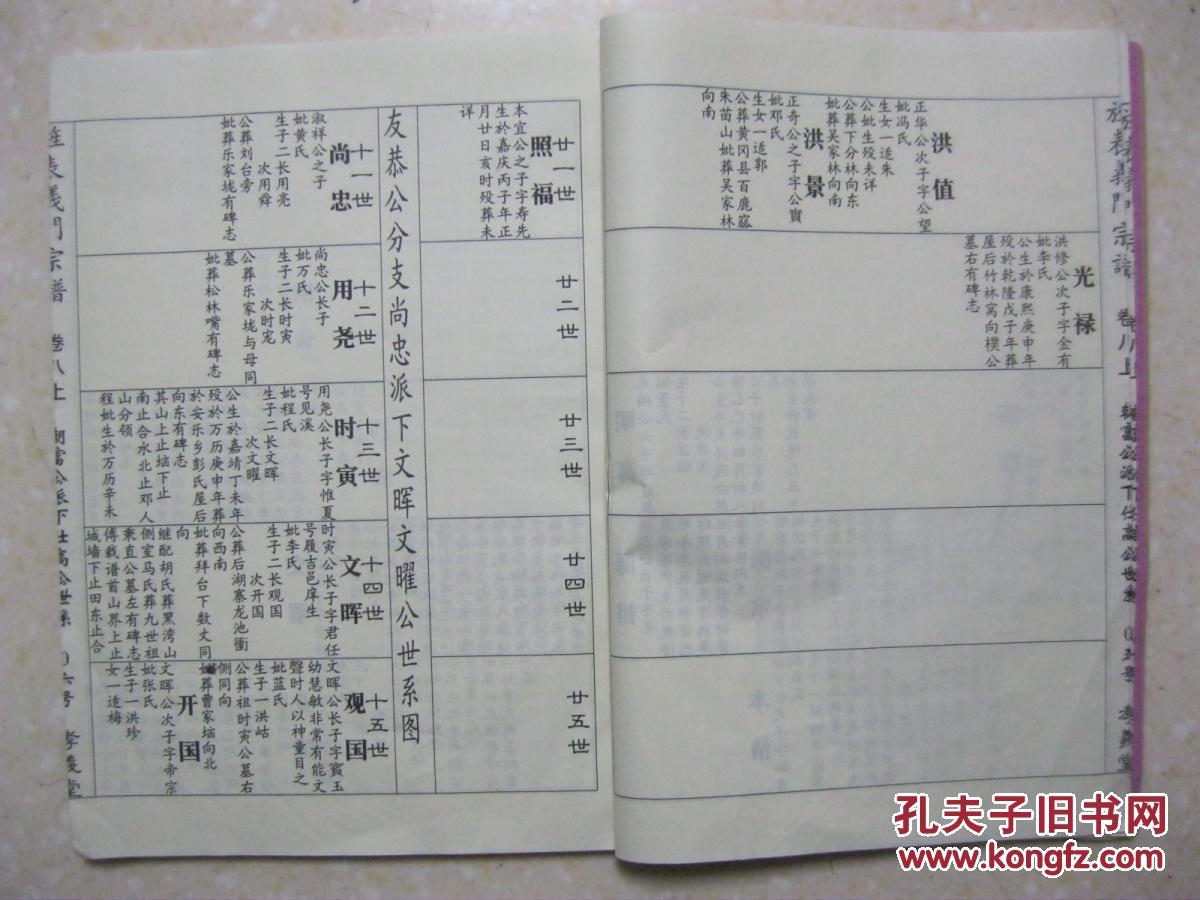 洪值
正华公次子字公望
妣冯氏
生女一适朱
公妣生殁未详
公葬下分林向东
妣葬吴家林向南
洪景
正奇公之子字公實
妣邓氏
生女一适郭
公葬黄冈县百鹿窊
朱苗山妣葬吴家林
向南
光禄
洪修公次子字金有
妣李氏
公生於康熙庚申年
殁於乾隆戊子年葬
屋后竹林窝向樸公
墓右有碑志
廿一世
照福
本宜公之子字寿先
生於嘉庆丙子年正
月廿日亥时殁葬未
详
廿二世
廿三世
廿四世
廿五世
友恭公分支尚忠派下文晖文曜公世系图
十一世
尚忠
淑祥公之子
妣黄氏
生子二长用亮
次用舜
公葬刘台旁
妣葬乐家垅有碑志
十二世
用尧
尚忠公长子
妣万氏
生子二长时寅
次时宠
公葬乐家垅与母同
墓
妣葬松林嘴有碑志
十三世
时寅
用尧公长子字惟夏
号见溪
妣程氏
生子二长文晖
次文曜
公生於嘉靖丁未年
殁於万历庚申年葬
於安乐乡彭氏屋后
向东有碑志
其山上止垴下止
南止合水北止邓人
山分领
程妣生於万历辛未
十四世
文晖
时寅公长子字君任
号履吉邑庠生
妣李氏
生子二长观国
次开国
公葬后湖寨龙池衝
向西南
妣葬拜台下数丈同
向
继配胡氏葬黑湾山
侧室马氏葬九世祖
秉直公墓左有碑志
傅载谱首山界上止
城墙下止田东止合
十五世
观国
文晖公长子字賓玉
幼慧敏非常有能文
聲时人以神童目之
妣蓝氏
生子一洪岵
公葬祖时寅公墓右
侧同向
妣葬曹家垴向北
开国
文晖公次子字帝宗
妣张氏
生子一洪珍
女一适梅
旌表義門宗谱
卷八上
孝義堂
孔夫子旧书网
www.kongfz.com